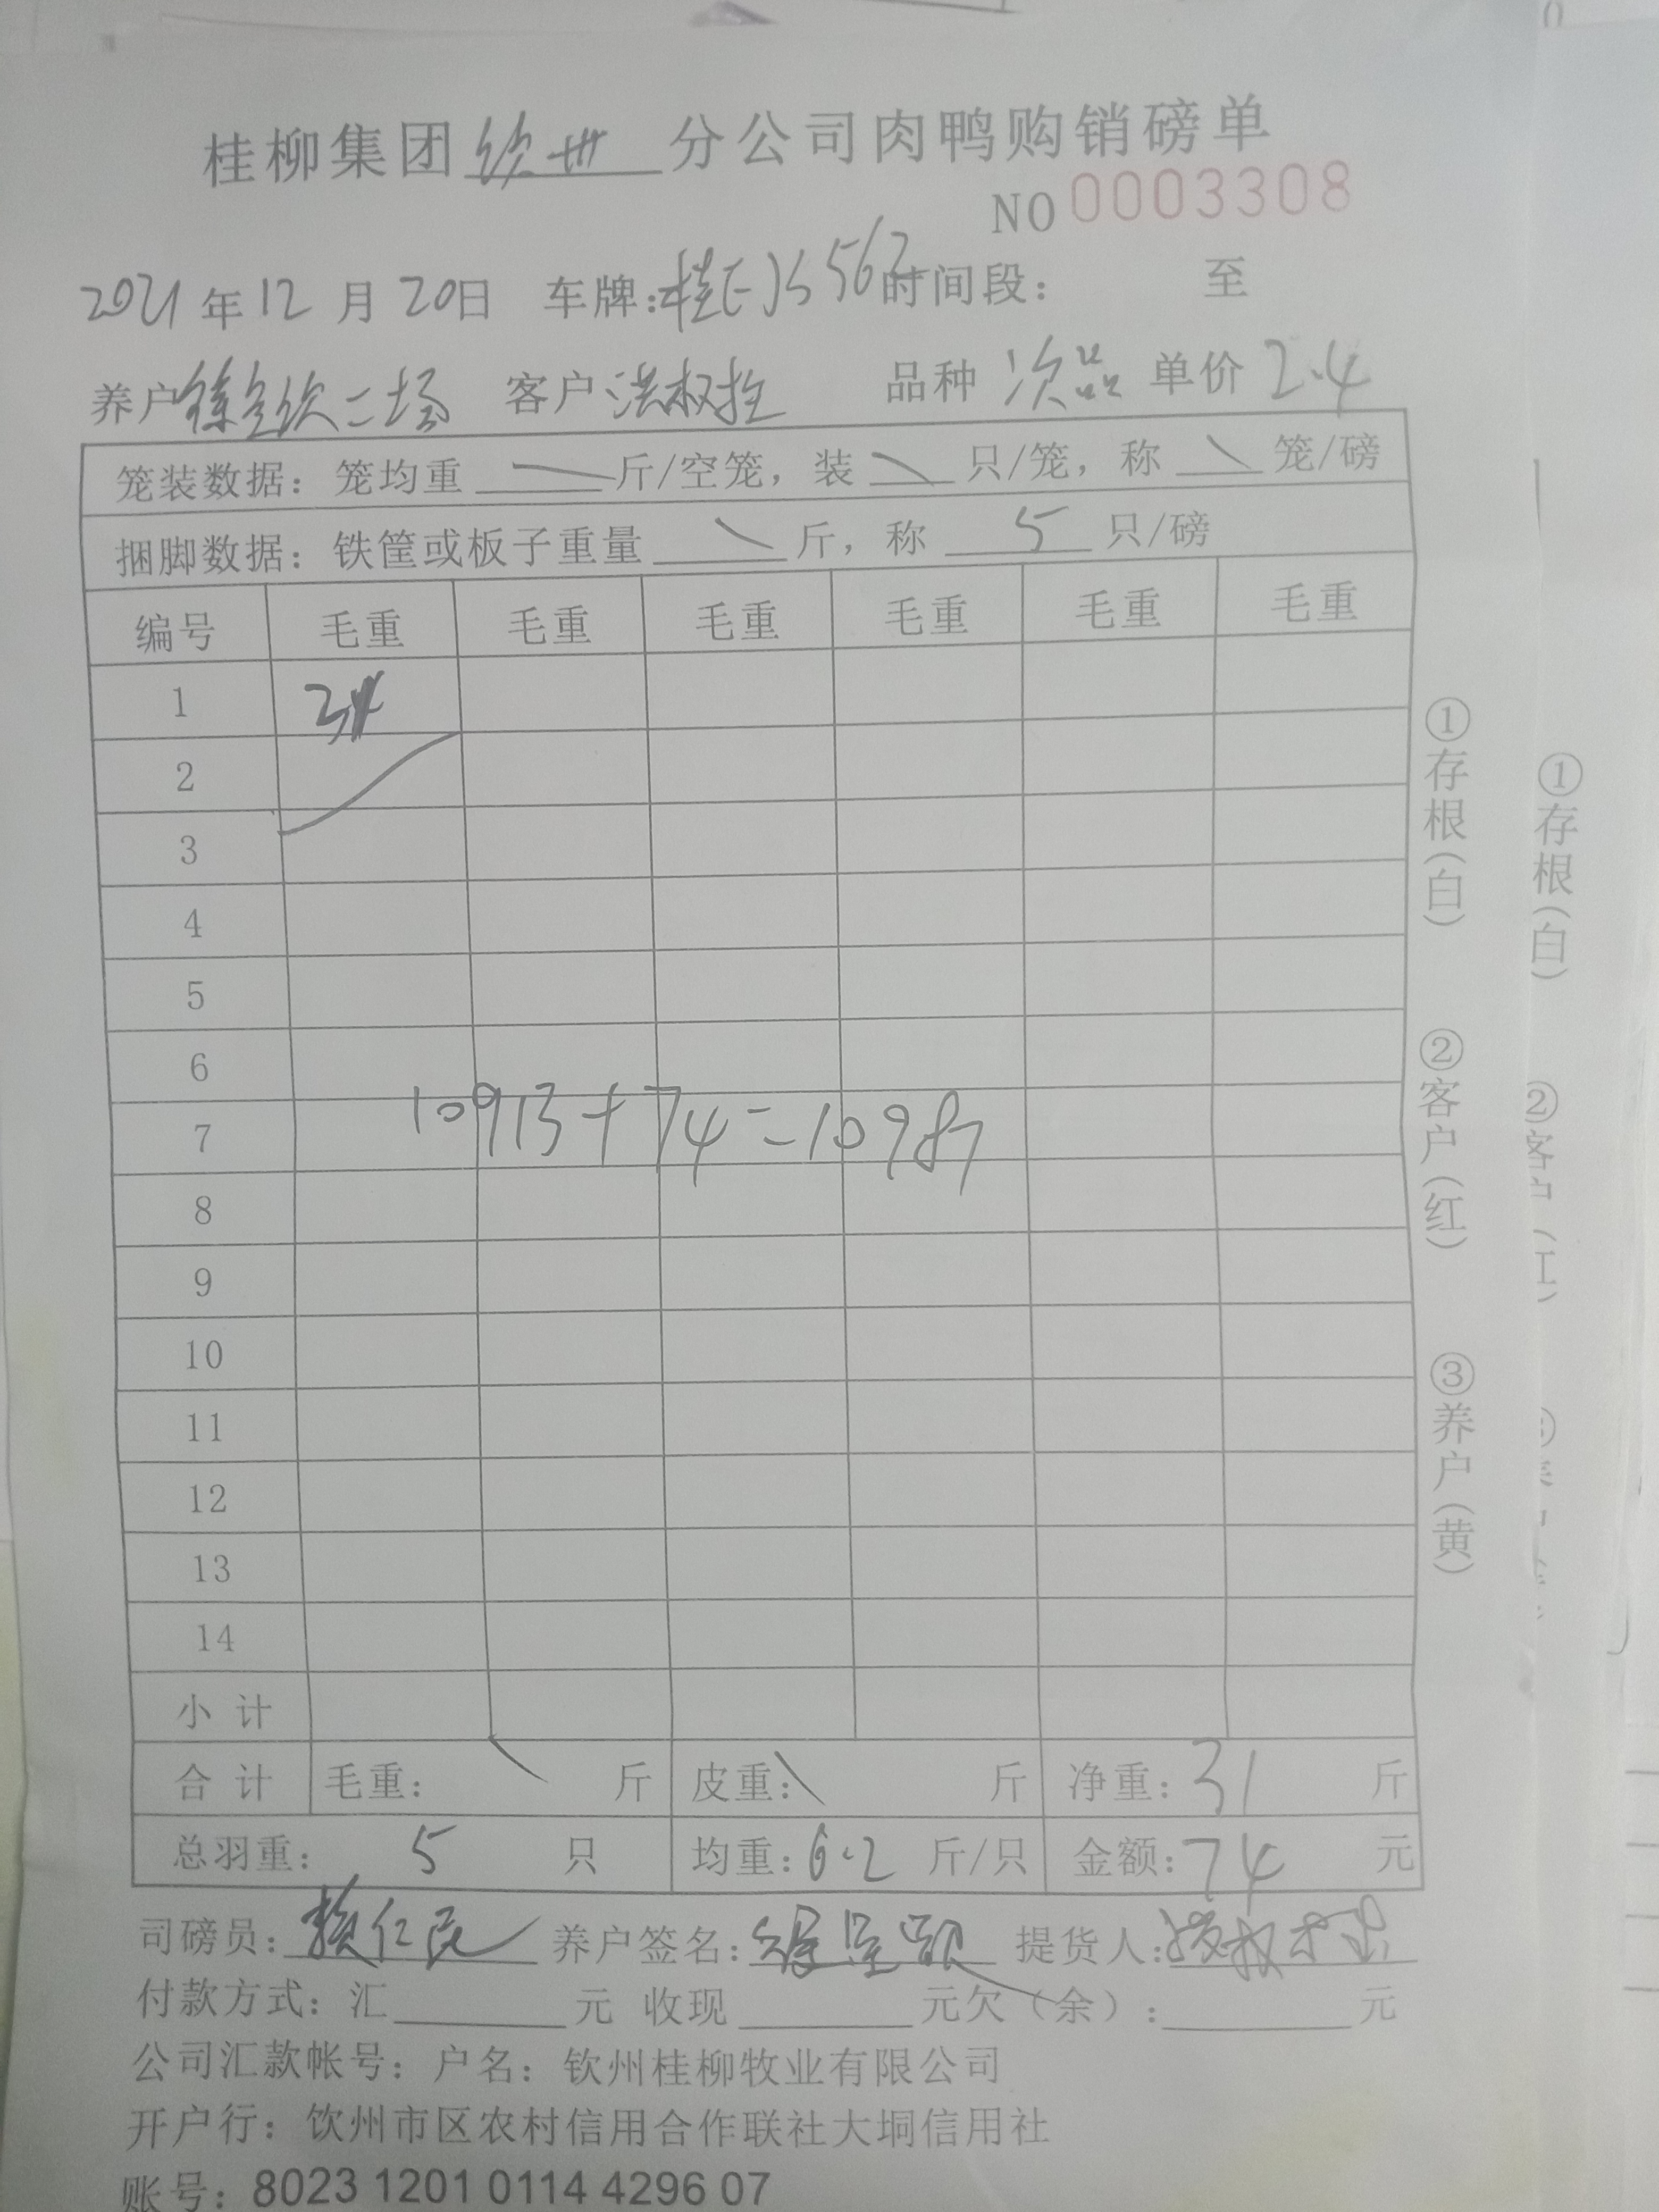 桂柳集团钦州分公司肉鸭购销磅单
NO 0003308
2021年12月20日 车牌:桂 时间段: 至
养户 二场 客户 洪权 品种 次品 单价 2.4
笼装数据:笼均重 斤/空笼,装 只/笼,称 笼/磅
捆脚数据:铁筐或板子重量 斤,称 5 只/磅
编号 毛重 毛重 毛重 毛重 毛重 毛重
1
2
3
4
5
6
7 10913+74=10987
8
9
10
11
12
13
14
小 计
合 计 毛重: 斤 皮重: 斤 净重:31 斤
总羽重: 5 只 均重:6.2 斤/只 金额:74 元
司磅员:赖仁民 养户签名: 提货人:
付款方式:汇 元 收现 元欠(余): 元
公司汇款帐号:户名:钦州桂柳牧业有限公司
开户行:钦州市区农村信用合作联社大垌信用社
账号:8023 1201 0114 4296 07
①存根(白) ②客户(红) ③养户(黄)
①存根(白)
②客户